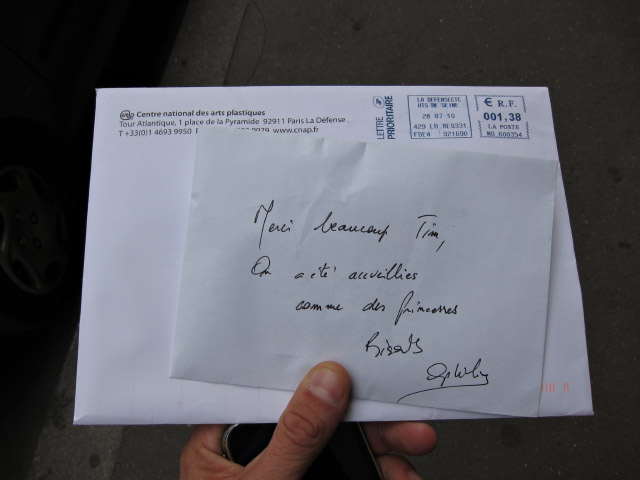 cnap Centre national des arts plastiques
Tour Atlantique, 1 place de la Pyramide 92911 Paris La Défense
T +33(0)1 4693 9950 F 9979 www.cnap.fr
LETTRE
PRIORITAIRE
LA DEFENSECTC
HTS DE SEINE
28 07 10
429 LD.RE9331
FDE4 921690
€ R.F.
001,38
LA POSTE
MU 600354
Merci beaucoup Tim,
On a été accueillies
comme des princesses
Bisous